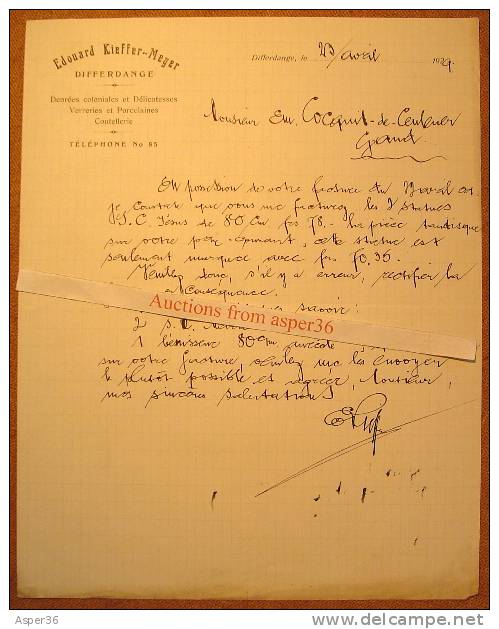 Edouard Kieffer-Meyer
DIFFERDANGE
Denrées coloniales et Délicatesses
Verreries et Porcelaines
Coutellerie
TÉLÉPHONE No 85
Differdange, le 23/avril 1929.
Monsieur Em. Cocquit-de-Ceuleneer
Gand
En possession de votre facture du avril cr.
je constate que vous me facturez les 2 statues
S. C. Jésus de 80 cm frs 78.- la pièce tandisque
sur votre prix-courant, cette statue est
seulement marquée avec frs 70.35.
Veuillez donc, s'il y a erreur, rectifier la
conséquence.
savoir:
2 S.
1 80cm
sur votre facture, veuillez me les envoyer
le plutôt possible et agréer, Monsieur,
mes sincères salutations
Auctions from asper36
Asper36
www.delcampe.net